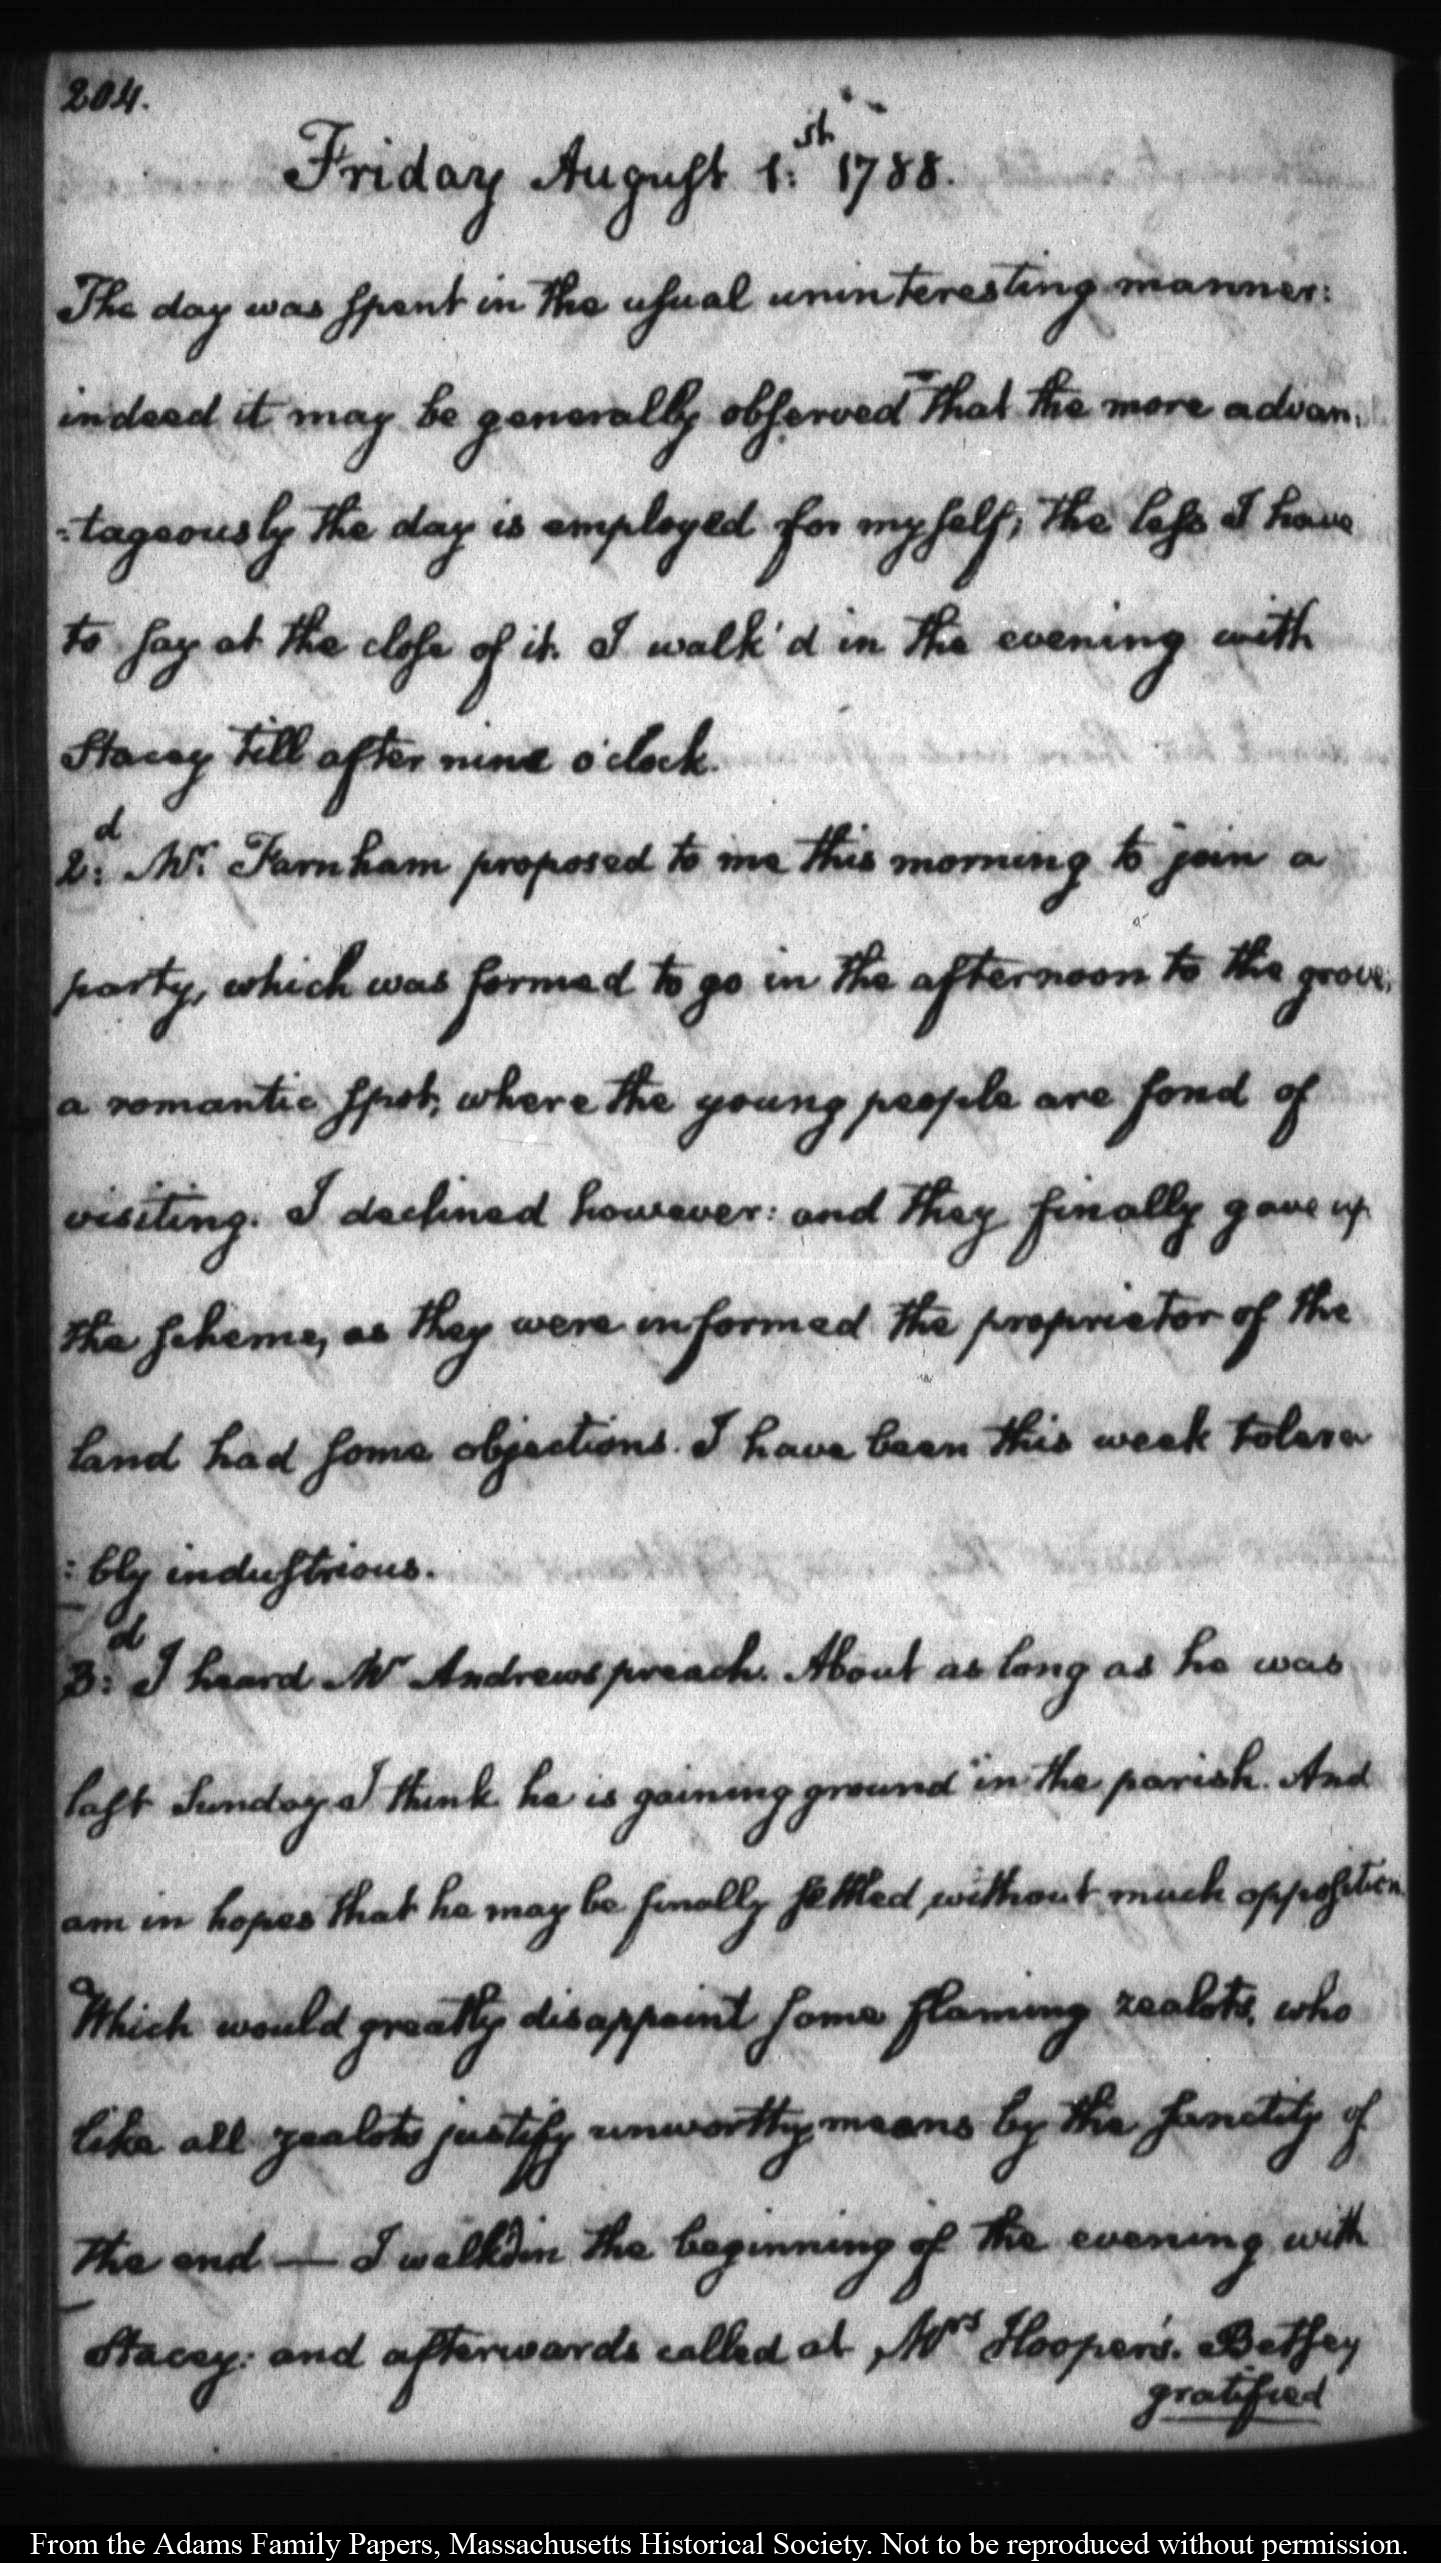 204.
Friday August 1:st 1788.
The day was spent in the usual uninteresting manner:
indeed it may be generally observed that the more advan:
:tageously the day is employed for myself, the less I have
to say at the close of it. I walk'd in the evening with
Stacey till after nine o'clock.
2:d Mr. Farnham proposed to me this morning to join a
party, which was formed to go in the afternoon to the grove;
a romantic spot, where the young people are fond of
visiting. I declined however: and they finally gave up
the scheme, as they were informed the proprietor of the
land had some objections. I have been this week tolera
:bly industrious.
3:d I heard Mr Andrews preach. About as long as he was
last Sunday I think he is gaining ground in the parish. And
am in hopes that he may be finally settled, without much opposition.
Which would greatly disappoint some flaming zealots, who
like all zealots justify unworthy means by the sanctity of
the end — I walk'd in the beginning of the evening with
Stacey: and afterwards called at Mrs Hooper's. Betsey
gratified
From the Adams Family Papers, Massachusetts Historical Society. Not to be reproduced without permission.